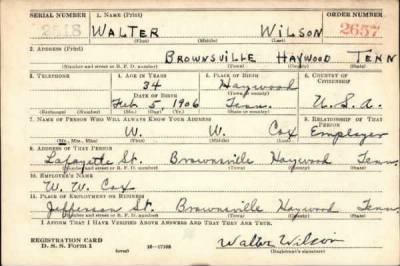 SERIAL NUMBER 1. NAME (Print) ORDER NUMBER
WALTER WILSON 2657
(First) (Middle) (Last)
2. ADDRESS (Print)
BROWNSVILLE HAYWOOD TENN
(Number and street or R. F. D. number) (Town) (County) (State)
3. TELEPHONE 4. AGE IN YEARS 5. PLACE OF BIRTH 6. COUNTRY OF CITIZENSHIP
34 Haywood
DATE OF BIRTH (Town or county)
Feb 5, 1906 Tenn. U.S.A.
(Exchange) (Number) (Mo.) (Day) (Yr.) (State or country)
7. NAME OF PERSON WHO WILL ALWAYS KNOW YOUR ADDRESS 8. RELATIONSHIP OF THAT PERSON
W. W. Cox Employer
(Mr., Mrs., Miss) (First) (Middle) (Last)
9. ADDRESS OF THAT PERSON
Lafayette St. Brownsville Haywood Tenn.
(Number and street or R. F. D. number) (Town) (County) (State)
10. EMPLOYER'S NAME
W. W. Cox
11. PLACE OF EMPLOYMENT OR BUSINESS
Jefferson St. Brownsville Haywood Tenn.
(Number and street or R. F. D. number) (Town) (County) (State)
I AFFIRM THAT I HAVE VERIFIED ABOVE ANSWERS AND THAT THEY ARE TRUE.
REGISTRATION CARD
D. S. S. Form 1 (over) 16-17105
Walter Wilson
(Registrant's signature)